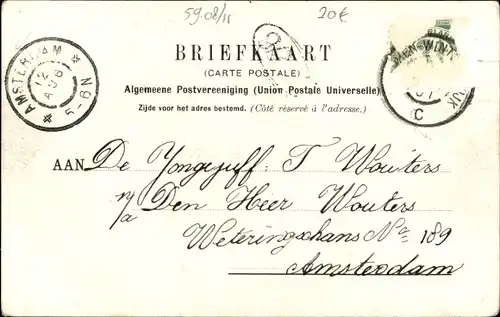 59.08/11 20€
BRIEFKAART
(CARTE POSTALE)
Algemeene Postvereeniging (Union Postale Universelle)
Zijde voor het adres bestemd. (Côté réservé à l'adresse.)
AMSTERDAM
5-6N
C
AAN De Jongejuff: T Wouters
n/a Den Heer Wouters
Weteringschans No 189
Amsterdam